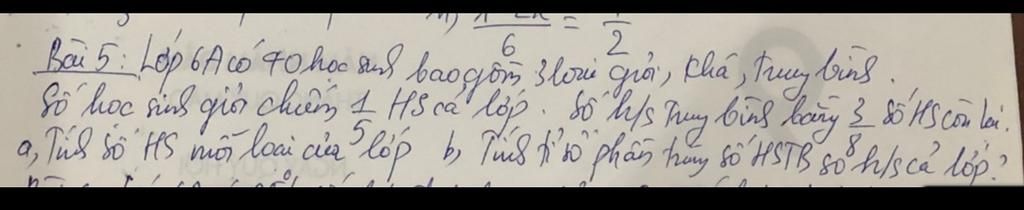 6 = 2
Bài 5: Lớp 6A có 40 học sinh bao gồm 3 loại giỏi, khá, trung bình.
Số học sinh giỏi chiếm 1/5 HS cả lớp. Số h/s trung bình bằng 3/8 số HS còn lại.
a, Tính số HS mỗi loại của lớp b, Tính tỉ số phần trăm số HSTB số h/s cả lớp?